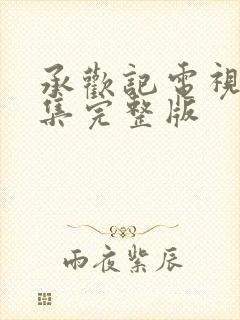 承歡記電視
集完整版
雨夜紫辰